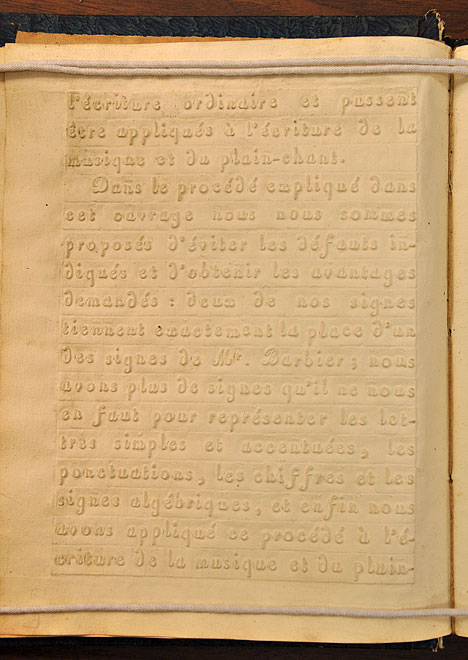 l'écriture ordinaire et pussent
être appliqués à l'écriture de la
musique et du plain-chant.
Dans le procédé expliqué dans
cet ouvrage nous nous sommes
proposés d'éviter les défauts in-
diqués et d'obtenir les avantages
demandés : deux de nos signes
tiennent exactement la place d'un
des signes de Mr. Barbier ; nous
avons plus de signes qu'il ne nous
en faut pour représenter les let-
tres simples et accentuées, les
ponctuations, les chiffres et les
signes algébriques, et enfin nous
avons appliqué ce procédé à l'é-
criture de la musique et du plain-